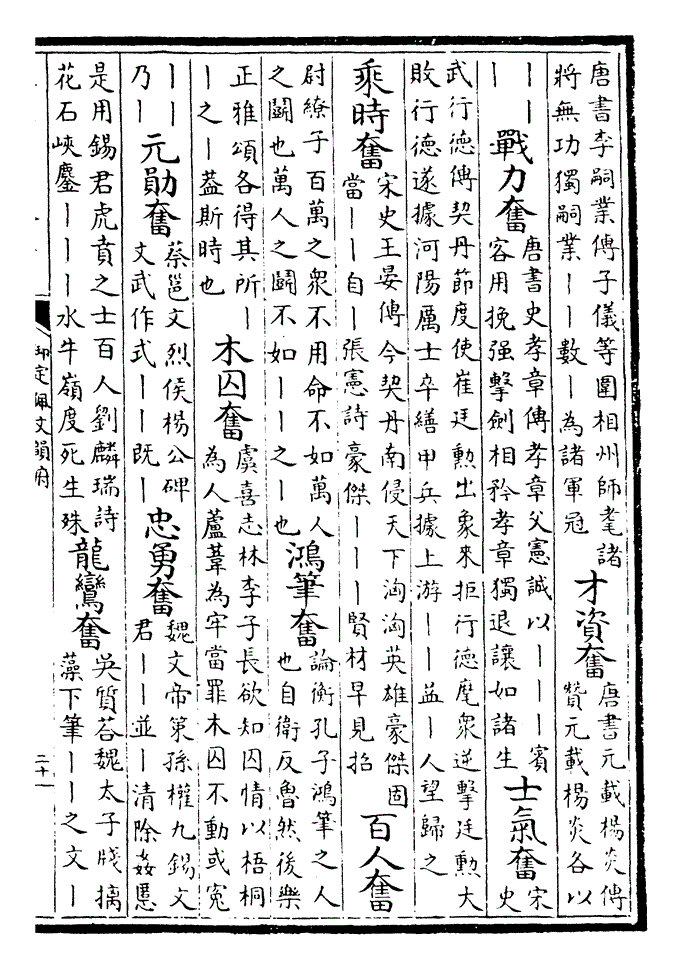 唐書李嗣業傳子儀等圍相州師耄諸
將無功獨嗣業丨丨數丨為諸軍冠
才資奮
唐書元載楊炎傳
贊元載楊炎各以
丨丨
丨
戰力奮
唐書史孝章傳孝章父憲誠以丨丨丨賓
客用挽强擊劍相矜孝章獨退讓如諸生
士氣奮
宋
史
武行德傳契丹節度使崔廷勳出象來拒行德麾衆逆擊廷勳大
敗行德遂據河陽厲士卒繕甲兵據上游丨丨益丨人望歸之
乘時奮
宋史王晏傳今契丹南侵天下洶洶英雄豪傑固
當丨丨自丨張憲詩豪傑丨丨丨賢材早見招
百人奮
尉繚子百萬之衆不用命不如萬人
之鬭也萬人之鬭不如丨丨之丨也
鴻筆奮
論衡孔子鴻筆之人
也自衛反魯然後樂
正雅頌各得其所丨
丨之丨葢斯時也
木囚奮
虞喜志林李子長欲知囚情以梧桐
為人蘆葦為牢當罪木囚不動或寃
丨丨
乃丨
元勛奮
蔡邕文烈侯楊公碑
文武作式丨丨既丨
忠勇奮
魏文帝策孫權九錫文
君丨丨並丨清除姦慝
是用錫君虎賁之士百人劉麟瑞詩
花石峽鏖丨丨丨水牛嶺度死生殊
龍鸞奮
吳質荅魏太子牋摛
藻下筆丨丨之文丨
御定佩文韻府
二十一